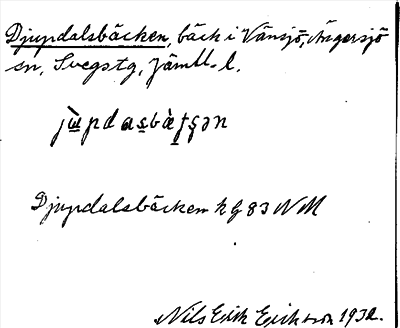 Djupdalsbäcken, bäck i Vänsjö, Ängersjö
sn, Svegs tg, Jämtl. l.
Djupdalsbäcken kg 83 NM
Nils Erik Eriksson 1932.